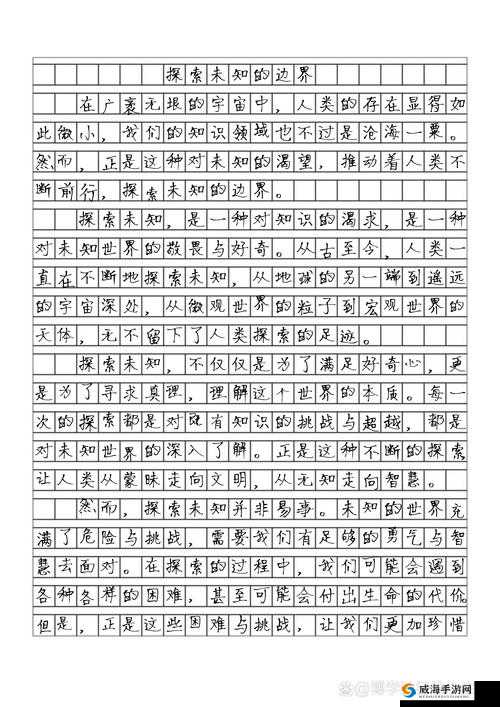 探索未知的边界
在广袤无垠的宇宙中，人类的存在显得如
此微小，我们的知识领域也不过是沧海一粟。
然而，正是这种对未知的渴望，推动着人类不
断前行，探索未知的边界。
探索未知，是一种对知识的渴求，是一种
对未知世界的敬畏与好奇。从古至今，人类一
直在不断地探索未知，从地球的另一端到遥远
的宇宙深处，从微观世界的粒子到宏观世界的
天体，无不留下了人类探索的足迹。
探索未知，不仅仅是为了满足好奇心，更
是为了寻求真理，理解这个世界的本质。每一
次的探索都是对既有知识的挑战与超越，都是
对未知世界的深入了解。正是这种不断的探索
让人类从蒙昧走向文明，从无知走向智慧。
然而，探索未知并非易事。未知的世界充
满了危险与挑战，需要我们有足够的勇气与智
慧去面对。在探索的过程中，我们可能会遇到
各种各样的困难，甚至可能会付出生命的代价。
但是，正是这些困难与挑战，让我们更加珍惜
威海手游网